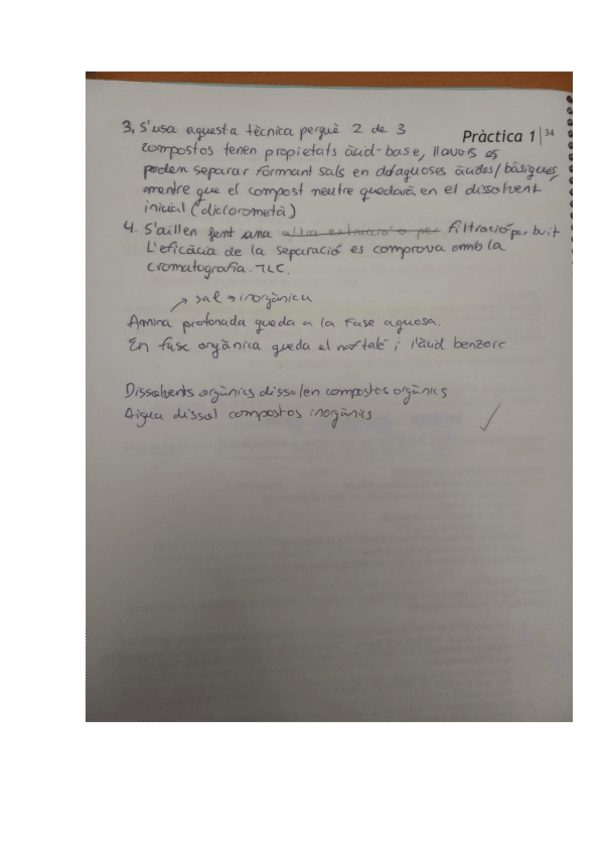 Pràctica 1 | 34
3. S'usa aquesta tècnica perquè 2 de 3
compostos tenen propietats àcid-base, llavors es
poden separar formant sals en d aquoses àcides/bàsiques,
mentre que el compost neutre quedarà en el dissolvent
inicial (diclorometà)
4. S'aillen fent una altra extracció o per filtració per buit
L'eficàcia de la separació es comprova amb la
cromatografia. TLC.
→ sal → inorgànica
Amina protonada queda a la fase aquosa.
En fase orgànica queda el naftalé i l'àcid benzoic
Dissolvents orgànics dissolen compostos orgànics
Aigua dissol compostos inorgànics